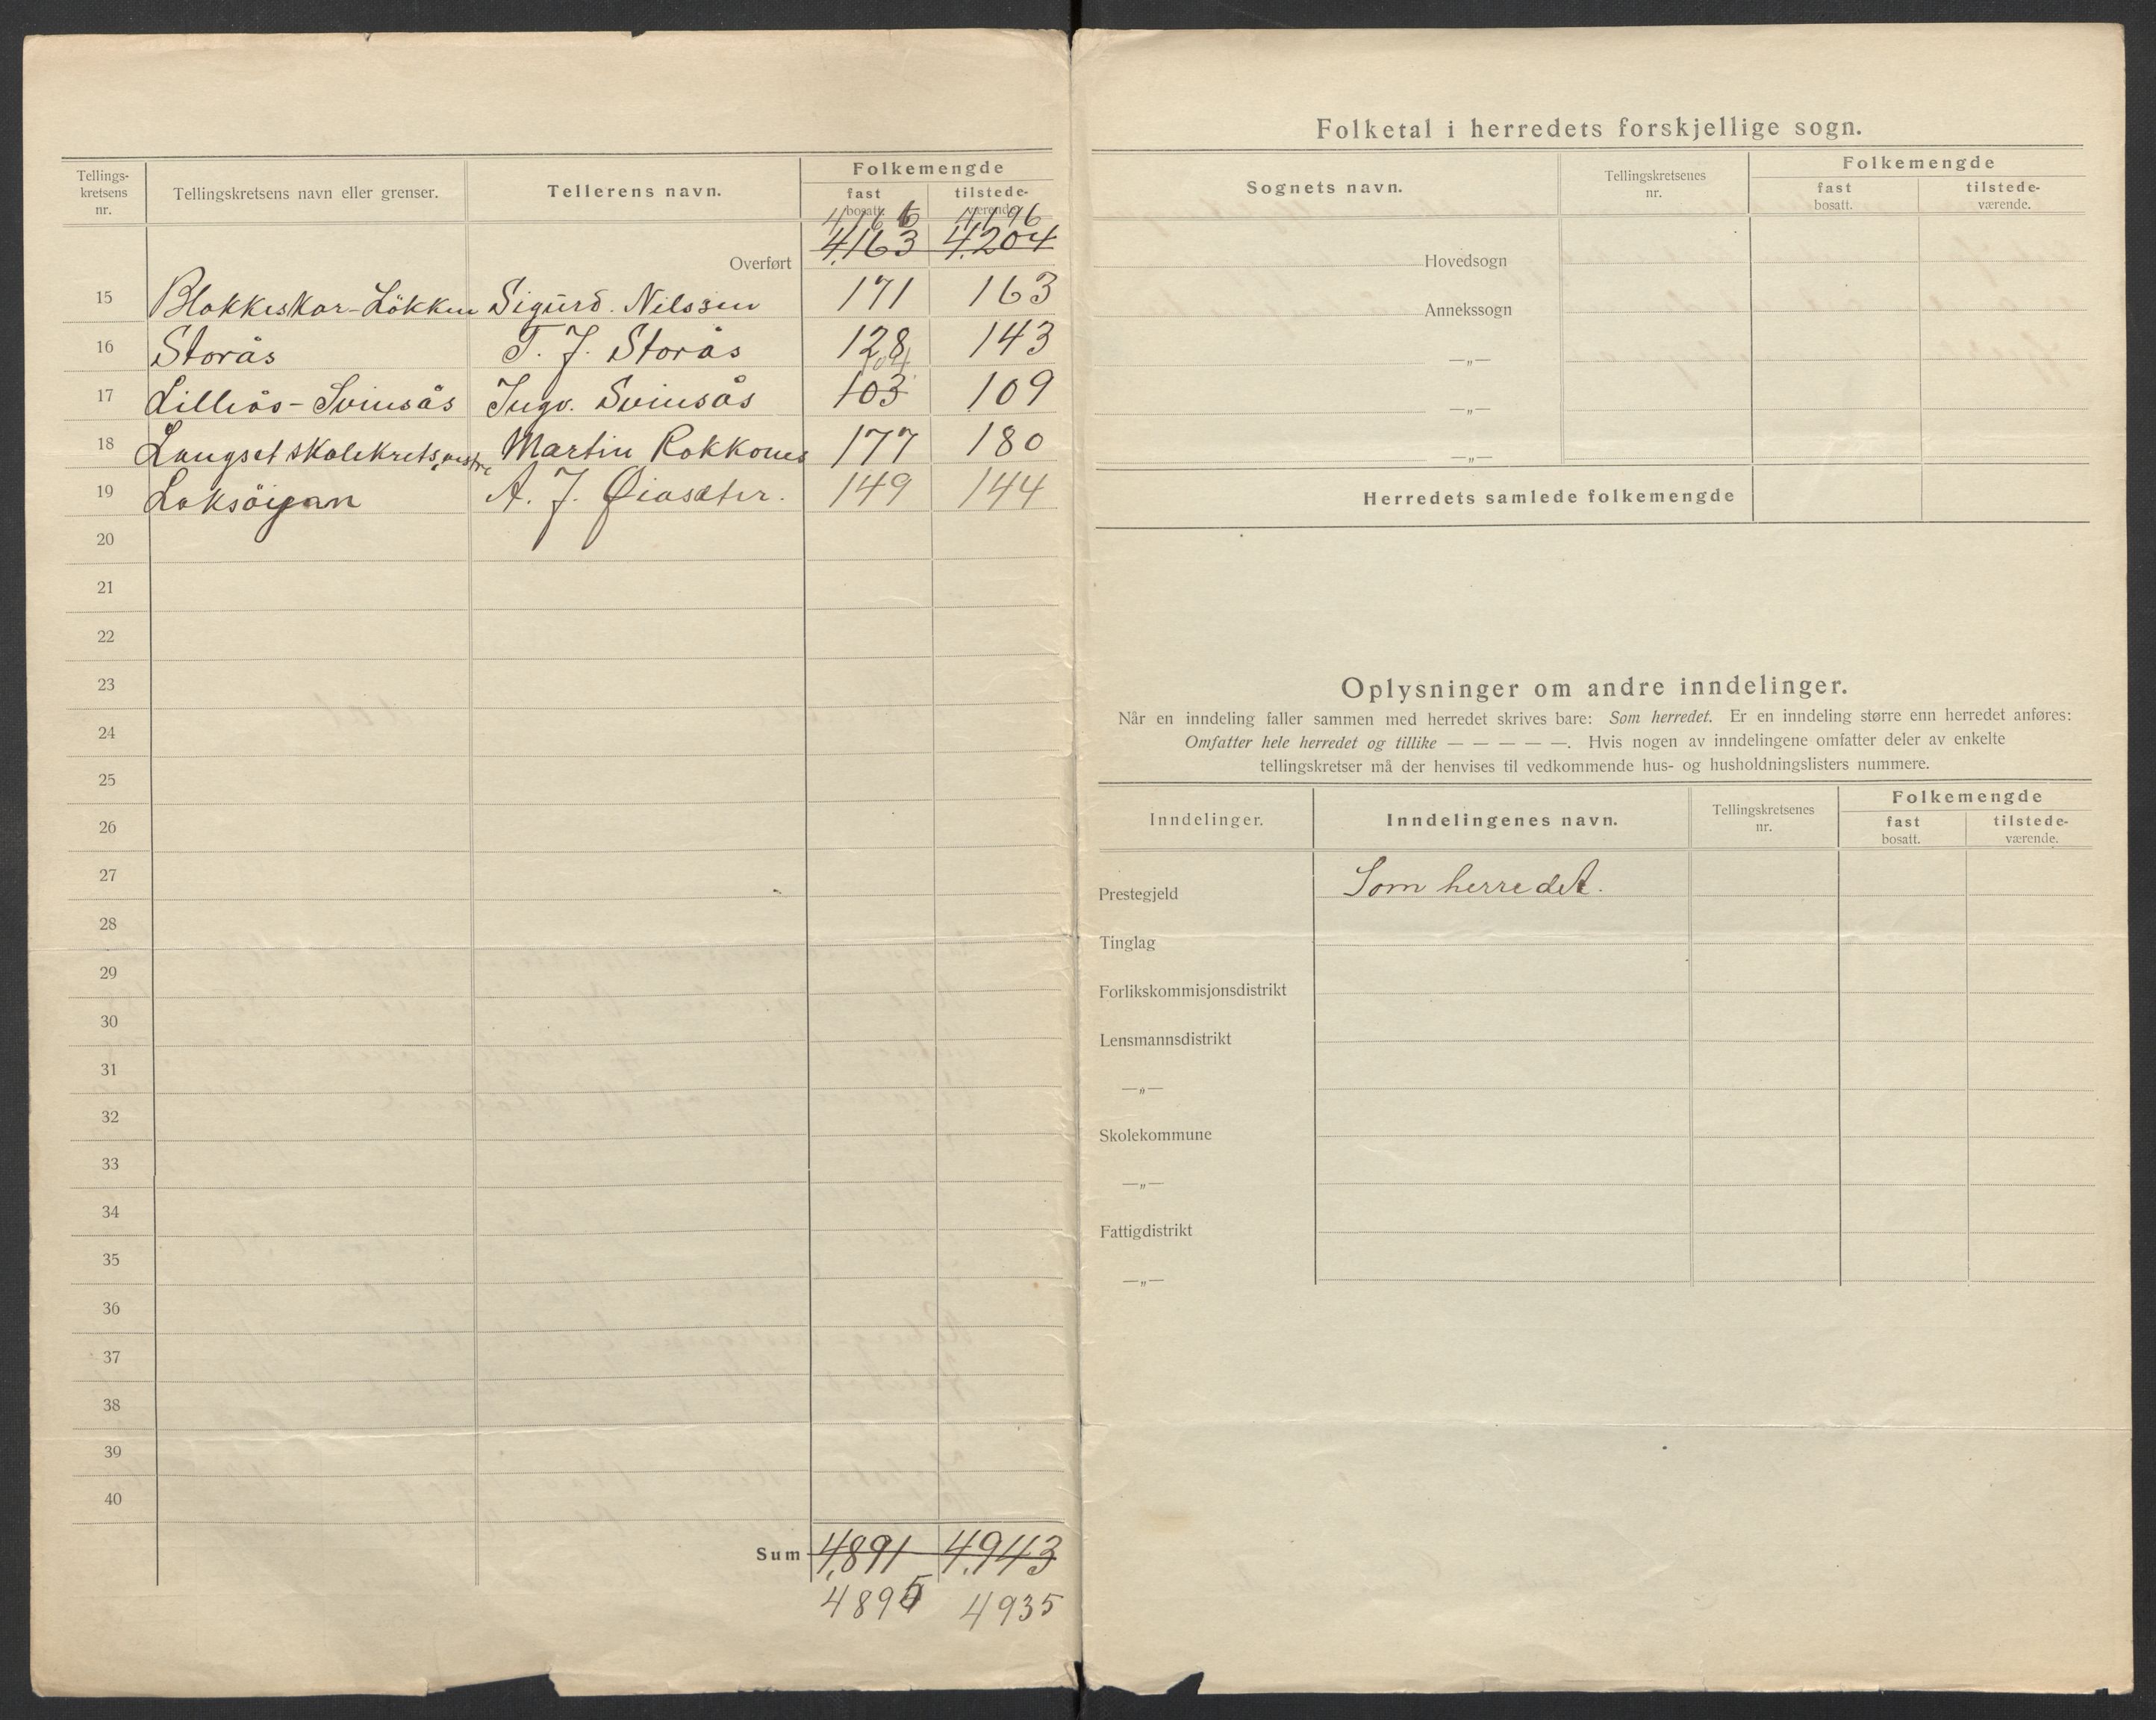 Tellings-
kretsens
nr.
Tellingskretsens navn eller grenser.
Tellerens navn.
Folkemengde
fast
bosatt.
tilstede-
værende.
4,166 4,196
Overført 4,163 4,204
15 Blokkeskar-Lökken Sigurd. Nilssen 171 163
16 Storås T. J. Storås 128 143
104
17 Lilleås-Svinsås Ingv. Svinsås 103 109
18 Langset skolekrets, vestre Martin Rokkones 177 180
19 Laksöigan A. J. Øiasæter. 149 144
20
21
22
23
24
25
26
27
28
29
30
31
32
33
34
35
36
37
38
39
40
Sum 4,891 4,943
4895 4935
Folketal i herredets forskjellige sogn.
Sognets navn.
Tellingskretsenes
nr.
Folkemengde
fast
bosatt.
tilstede-
værende.
Hovedsogn
Annekssogn
—„—
—„—
—„—
Herredets samlede folkemengde
Oplysninger om andre inndelinger.
Når en inndeling faller sammen med herredet skrives bare: Som herredet. Er en inndeling større enn herredet anføres:
Omfatter hele herredet og tillike — — — — —. Hvis nogen av inndelingene omfatter deler av enkelte
tellingskretser må der henvises til vedkommende hus- og husholdningslisters nummere.
Inndelinger.
Inndelingenes navn.
Tellingskretsenes
nr.
Folkemengde
fast
bosatt.
tilstede-
værende.
Prestegjeld Som herredet.
Tinglag
Forlikskommisjonsdistrikt
Lensmannsdistrikt
—„—
Skolekommune
—„—
Fattigdistrikt
—„—